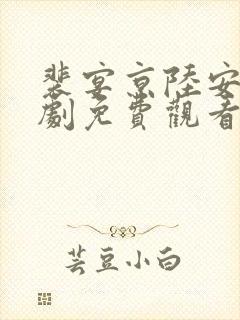 裴宴京陸安
劇免費觀看
芸豆小白